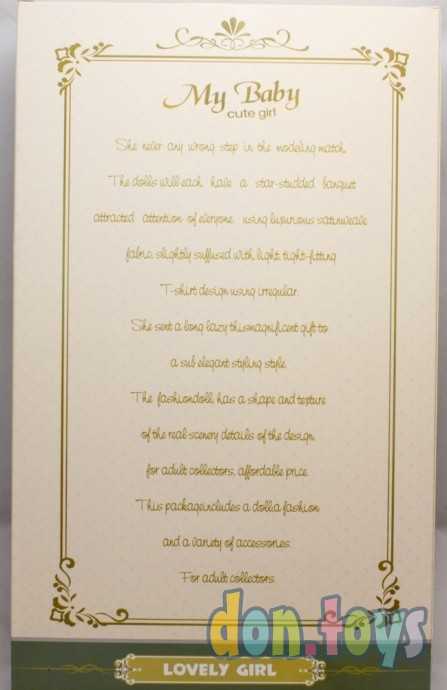 My Baby
cute girl
She never any wrong step in the modeling match,
The dolls will each have a star-studded banquet
attracted attention of everyone using luxurious satinweave
fabric, slightly suffused with light, tight-fitting
T-shirt design using irregular.
She sent a long lazy thismagnificent gift to
a sub elegant styling style.
The fashiondoll has a shape and texture
of the real scenery details of the design
for adult collectors, affordable price.
This packageincludes a doll,a fashion
and a variety of accessories.
For adult collectors.
don.toys
LOVELY GIRL